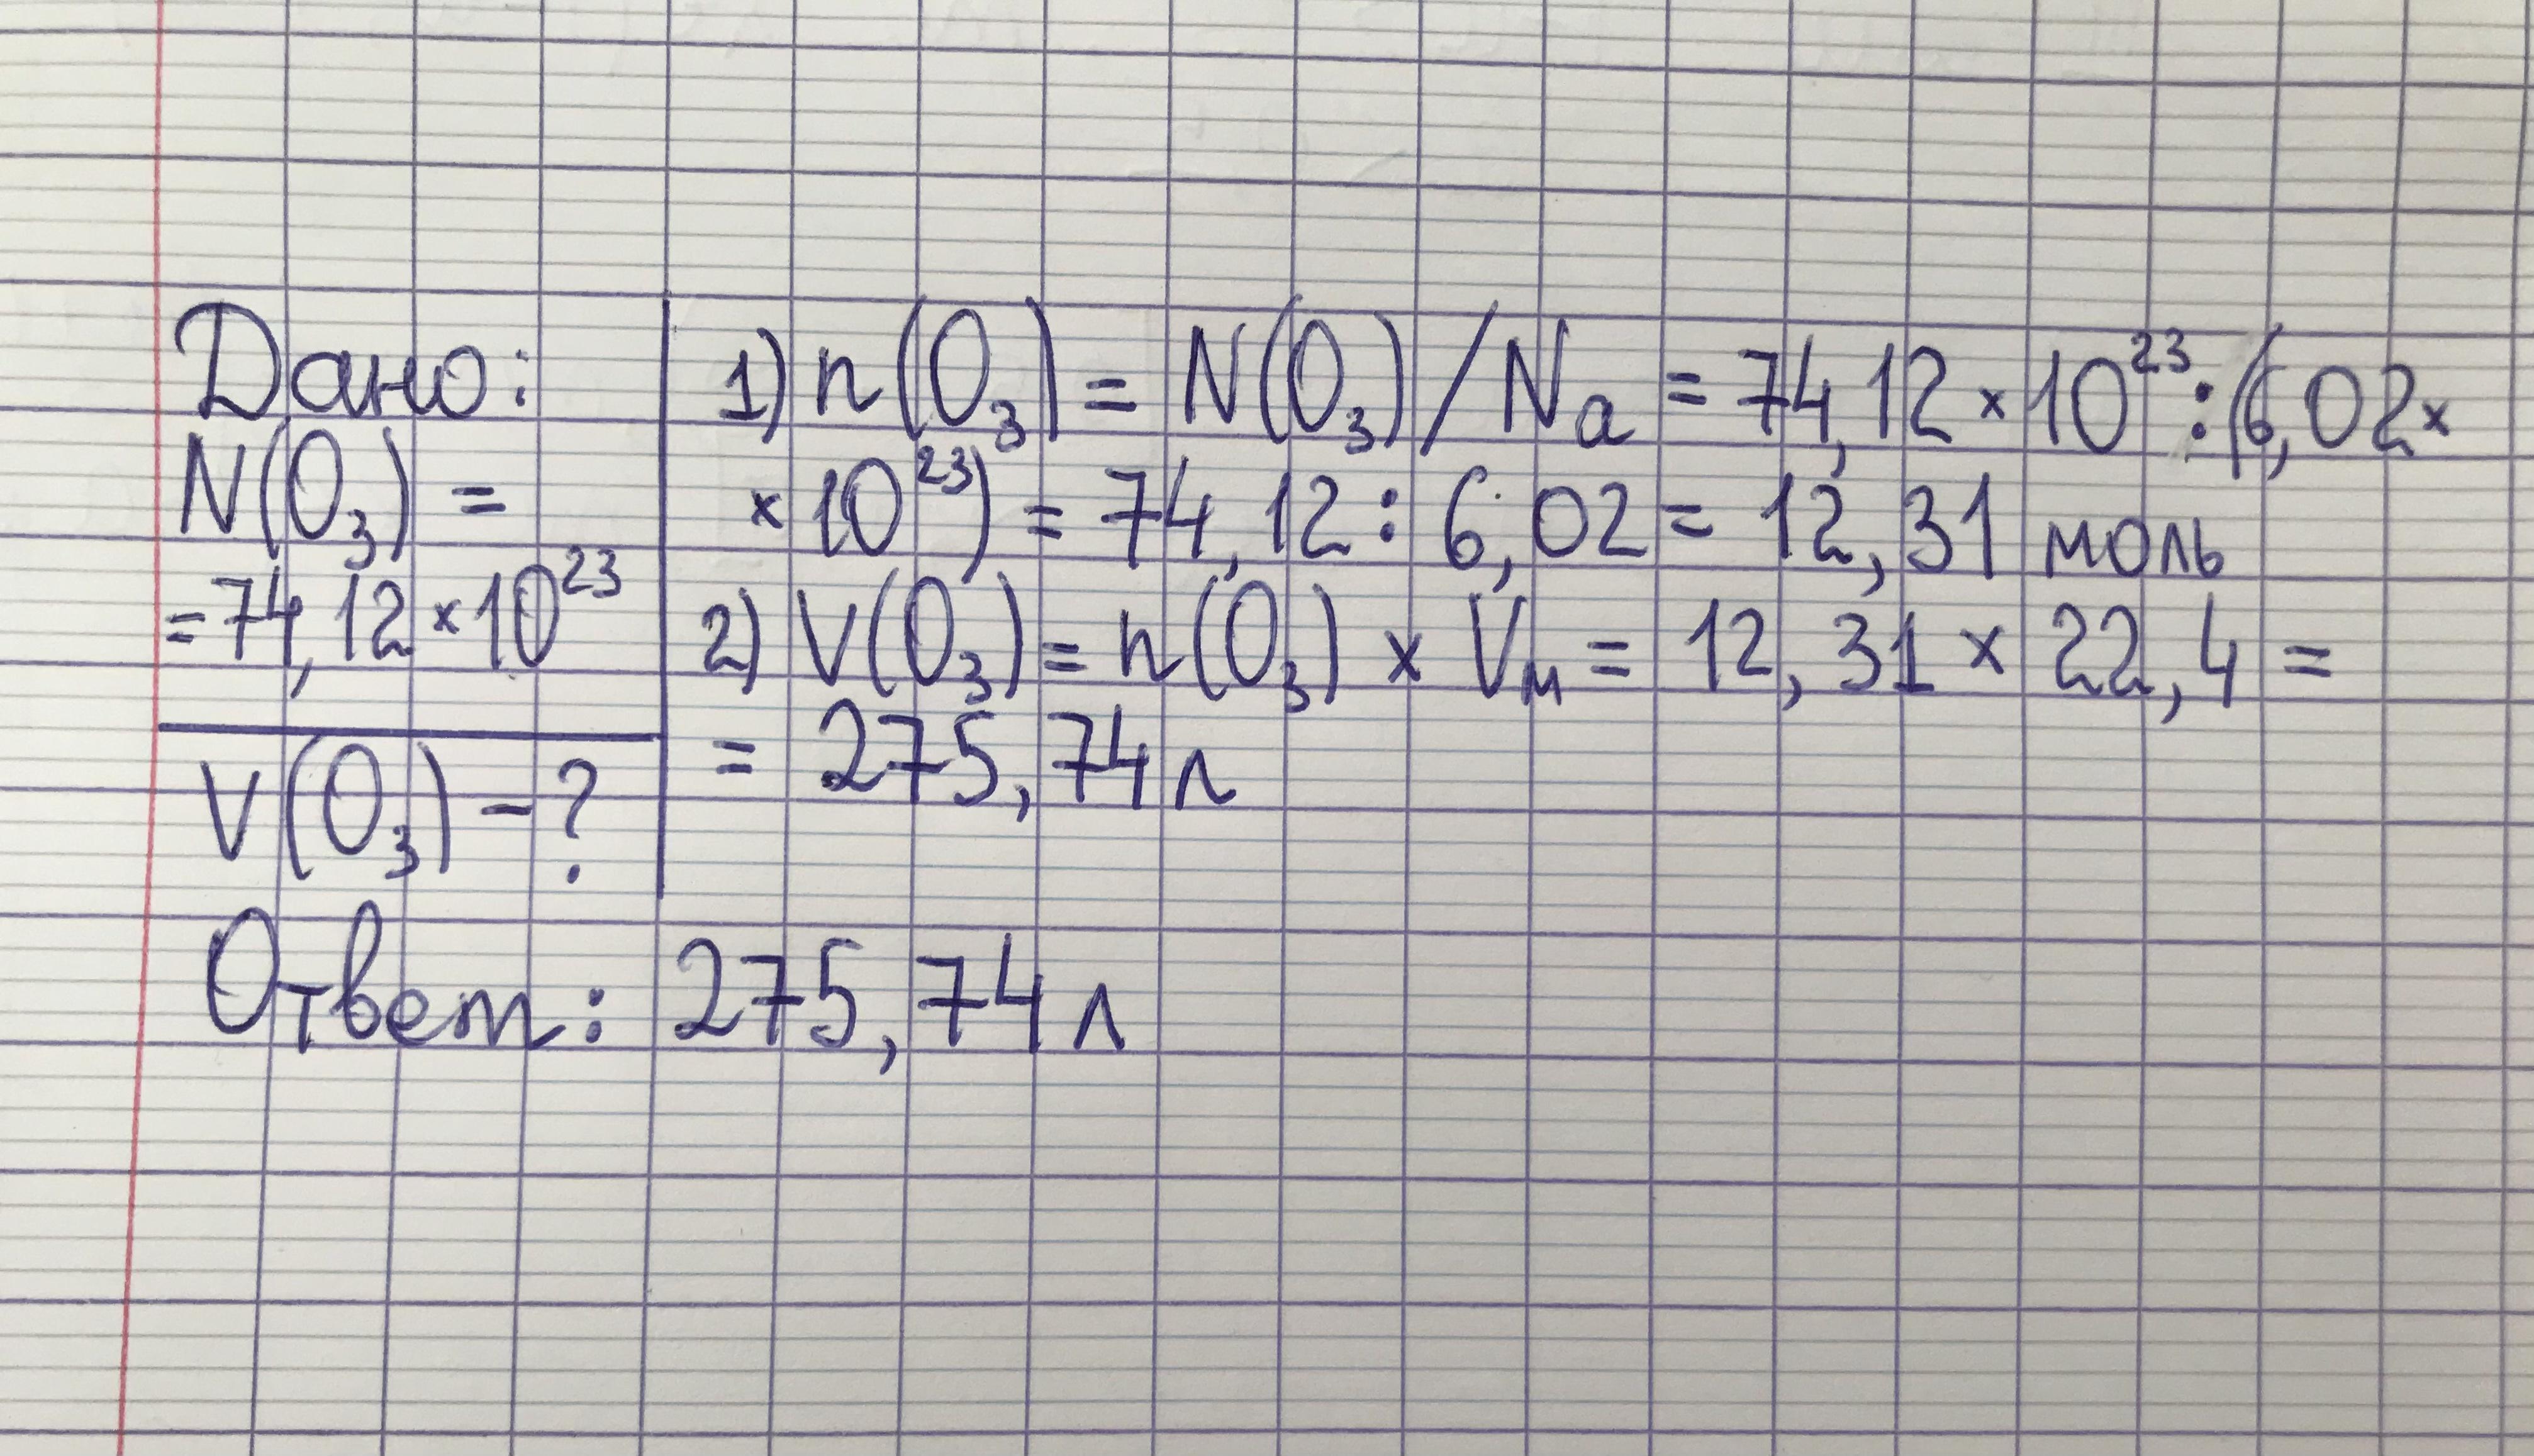 Дано:
N(O₃) =
= 74,12 × 10²³
V(O₃) – ?
1) n(O₃) = N(O₃) / Nа = 74,12 × 10²³ : (6,02 ×
× 10²³) = 74,12 : 6,02 = 12,31 моль
2) V(O₃) = n(O₃) × Vм = 12,31 × 22,4 =
= 275,74 л
Ответ: 275,74 л